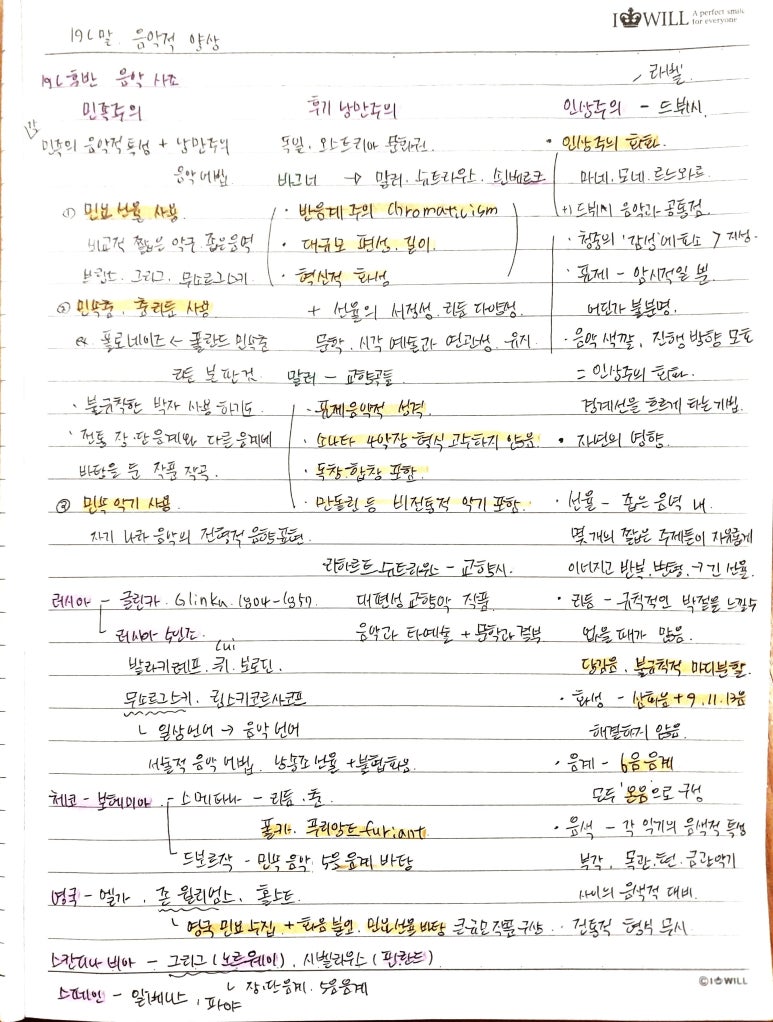 I WILL A perfect smile for everyone
19C 말. 음악적 양상
19C 후반 음악 사조
라벨
민족주의
민족의 음악적 특성 + 낭만주의
음악 어법.
① 민요 선율 사용
비교적 짧은 악구. 좁은 음역
브람스. 그리그. 무소르그스키.
② 민속춤. 춤리듬 사용
ex. 폴로네이즈 ← 폴란드 민속춤
리듬 본 판 검
· 불규칙한 박자 사용하기도
· 전통 장·단음계와 다른 음계에
바탕을 둔 작품 작곡.
③ 민속 악기 사용
자기 나라 음악의 전형적 음향 표현.
후기 낭만주의
독일. 오스트리아 문화권.
바그너 → 말러. 슈트라우스. 쇤베르크
· 반음계주의 Chromaticism
· 대규모 편성. 길이.
· 혁신적 화성
+ 선율의 서정성. 리듬 다양성.
문학. 시각 예술과 연관성. 유지.
말러 - 교향곡들
· 표제음악적 성격.
· 소나타 4악장 형식 고수하지 않음.
· 독창·합창 포함.
· 만돌린 등 비전통적 악기 포함.
리하르트 슈트라우스 - 교향시.
대편성 교향악 작품
음악과 타예술 + 문학과 결부
인상주의 - 드뷔시.
· 인상주의 회화.
마네. 모네. 르느와르.
드뷔시 음악과 공통점.
· 청중의 '감성'에 호소 > 지성.
· 표제 - 암시적일 뿐.
어딘가 불분명.
· 음악 색깔. 진행 방향 모호
= 인상주의 회화.
경계선을 흐르게 하는 기법.
· 자연의 영향.
· 선율 - 좁은 음역 내.
몇 개의 짧은 주제들이 자유롭게
이어지고 반복. 변형. → 긴 선율.
· 리듬 - 규칙적인 박절을 느낄 수
없을 때가 많음.
당김음. 불규칙적 마디분할.
· 화성 - 삼화음 + 9. 11. 13음
해결하지 않음.
· 음계 - 6음 음계
모두 '온음'으로 구성
· 음색 - 각 악기의 음색적 특성
부각. 목관·현·금관악기
사이의 음색적 대비.
· 전통적 형식 무시
러시아 - 글린카. Glinka. 1904-1957.
러시아 5인조
Cui
발라키레프. 퀴. 보로딘.
무소르그스키. 림스키코르사코프
일상언어 → 음악 언어
서술적 음악 어법. 낭송조 선율 + 불협화음
체코 - 보헤미아 - 스메타나 - 리듬. 춤
폴카. 푸리안트 - furiant
드보르작 - 민속음악. 5음 음계 바탕
영국 - 엘가. 본 윌리엄스. 홀스트
영국 민요 수집 + 화음 붙임. 민요선율 바탕 큰 규모 작품 구상
스칸디나비아 - 그리그 (노르웨이). 시벨리우스 (핀란드).
장·단음계. 5음음계
스페인 - 알베니스. 파야
© I WILL